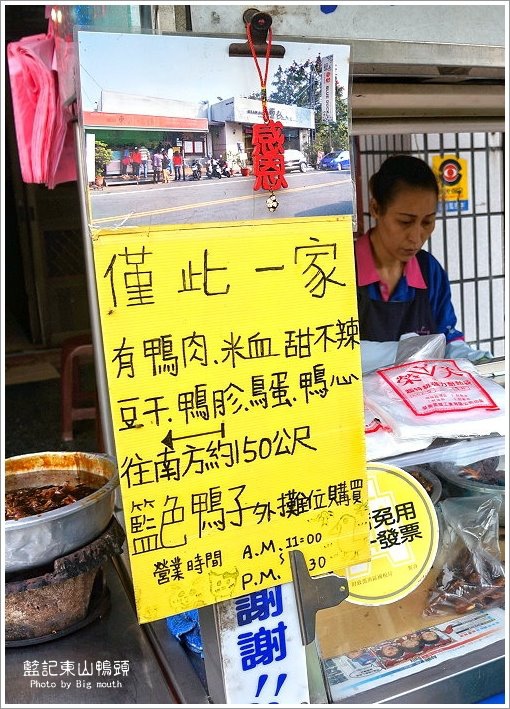 感恩
僅此一家
有鴨肉.米血 甜不辣
豆干.鴨胗.鳥蛋.鴨心
往南方約150公尺
籃色鴨子外攤位購買
營業時間 A.M.11=00
P.M. 30
謝謝!!
免用
發票
藍記東山鴨頭
Photo by Big mouth